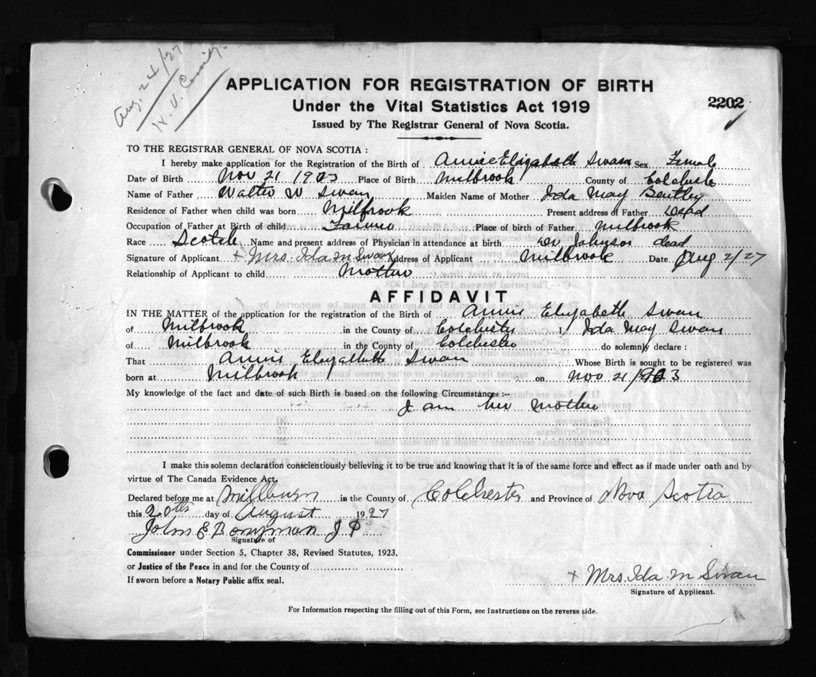 Aug. 24/27
APPLICATION FOR REGISTRATION OF BIRTH
Under the Vital Statistics Act 1919
2202
Issued by The Registrar General of Nova Scotia.
TO THE REGISTRAR GENERAL OF NOVA SCOTIA :
I hereby make application for the Registration of the Birth of Annie Elizabeth Swan Sex Female
Date of Birth Nov 21 1903 Place of Birth Milbrook County of Colchester
Name of Father Walter W Swan Maiden Name of Mother Ida May Bentley
Residence of Father when child was born Milbrook Present address of Father Dead
Occupation of Father at Birth of child Farmer Place of birth of Father Milbrook
Race Scotch Name and present address of Physician in attendance at birth Dr Johnson dead
Signature of Applicant + Mrs. Ida M Swan Address of Applicant Milbrook Date Aug 2/27
Relationship of Applicant to child Mother
AFFIDAVIT
IN THE MATTER of the application for the registration of the Birth of Annie Elizabeth Swan
of Milbrook in the County of Colchester I, Ida May Swan
of Milbrook in the County of Colchester do solemnly declare :
That Annie Elizabeth Swan Whose Birth is sought to be registered was
born at Milbrook on Nov 21 1903
My knowledge of the fact and date of such Birth is based on the following Circumstances :-
I am her mother
I make this solemn declaration conscientiously believing it to be true and knowing that it is of the same force and effect as if made under oath and by
virtue of The Canada Evidence Act.
Declared before me at Millburn in the County of Colchester and Province of Nova Scotia
this 20th day of August 1927
John E J P
Signature of
Commissioner under Section 5, Chapter 38, Revised Statutes, 1923.
or Justice of the Peace in and for the County of
If sworn before a Notary Public affix seal.
+ Mrs. Ida M Swan
Signature of Applicant.
For Information respecting the filling out of this Form, see Instructions on the reverse side.